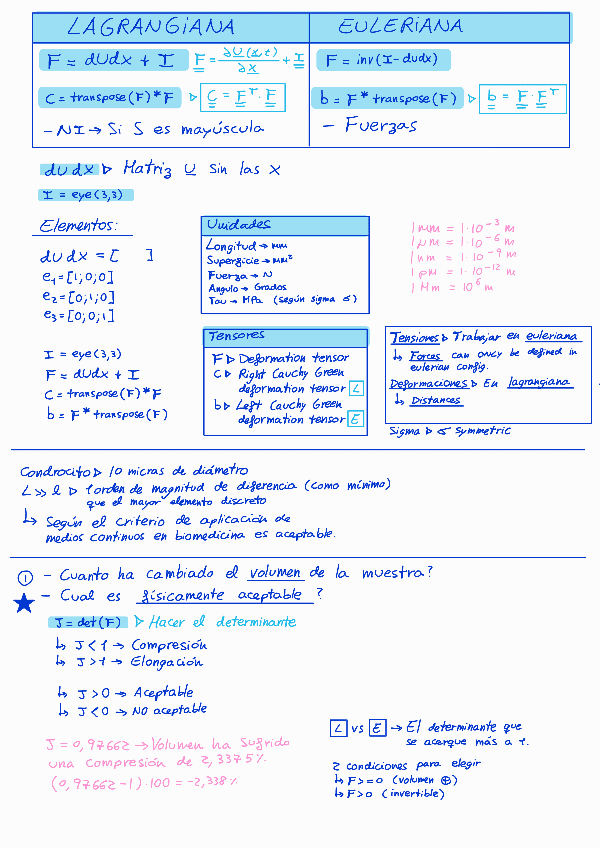 LAGRANGIANA
EULERIANA
F = dUdx + I
F = ∂U(x,t)/∂x + I
F = inv(I - dudx)
C = transpose(F) * F ▷ C = Fᵀ · F
b = F * transpose(F) ▷ b = F · Fᵀ
- NI → Si S es mayúscula
- Fuerzas
dUdX ▷ Matriz U sin las x
I = eye(3,3)
Elementos:
dUdX = [ ]
e1 = [1;0;0]
e2 = [0;1;0]
e3 = [0;0;1]
I = eye(3,3)
F = dUdx + I
C = transpose(F) * F
b = F * transpose(F)
Unidades
Longitud → mm
Superficie → mm²
Fuerza → N
Angulo → Grados
Tau → MPa (según sigma σ)
1 mm = 1·10⁻³ m
1 μm = 1·10⁻⁶ m
1 nm = 1·10⁻⁹ m
1 pm = 1·10⁻¹² m
1 Mm = 10⁶ m
Tensores
F ▷ Deformation tensor
C ▷ Right Cauchy Green
deformation tensor L
b ▷ Left Cauchy Green
deformation tensor E
Tensiones ▷ Trabajar en euleriana
↳ Forces can only be defined in
eulerian config.
Deformaciones ▷ En lagrangiana
↳ Distances
Sigma ▷ σ symmetric
Condrocito ▷ 10 micras de diámetro
L >> l ▷ 1 orden de magnitud de diferencia (como mínimo)
que el mayor elemento discreto
↳ Según el criterio de aplicación de
medios continuos en biomedicina es aceptable.
① - Cuanto ha cambiado el volumen de la muestra?
★ - Cual es físicamente aceptable?
J = det(F) ▷ Hacer el determinante
↳ J < 1 → Compresión
↳ J > 1 → Elongación
↳ J > 0 → Aceptable
↳ J < 0 → NO aceptable
J = 0,97662 → Volumen ha sufrido
una compresión de 2,3375%.
(0,97662 - 1) · 100 = -2,338%
L vs E → El determinante que
se acerque más a 1.
2 condiciones para elegir
↳ F >= 0 (volumen ⊕)
↳ F > 0 (invertible)